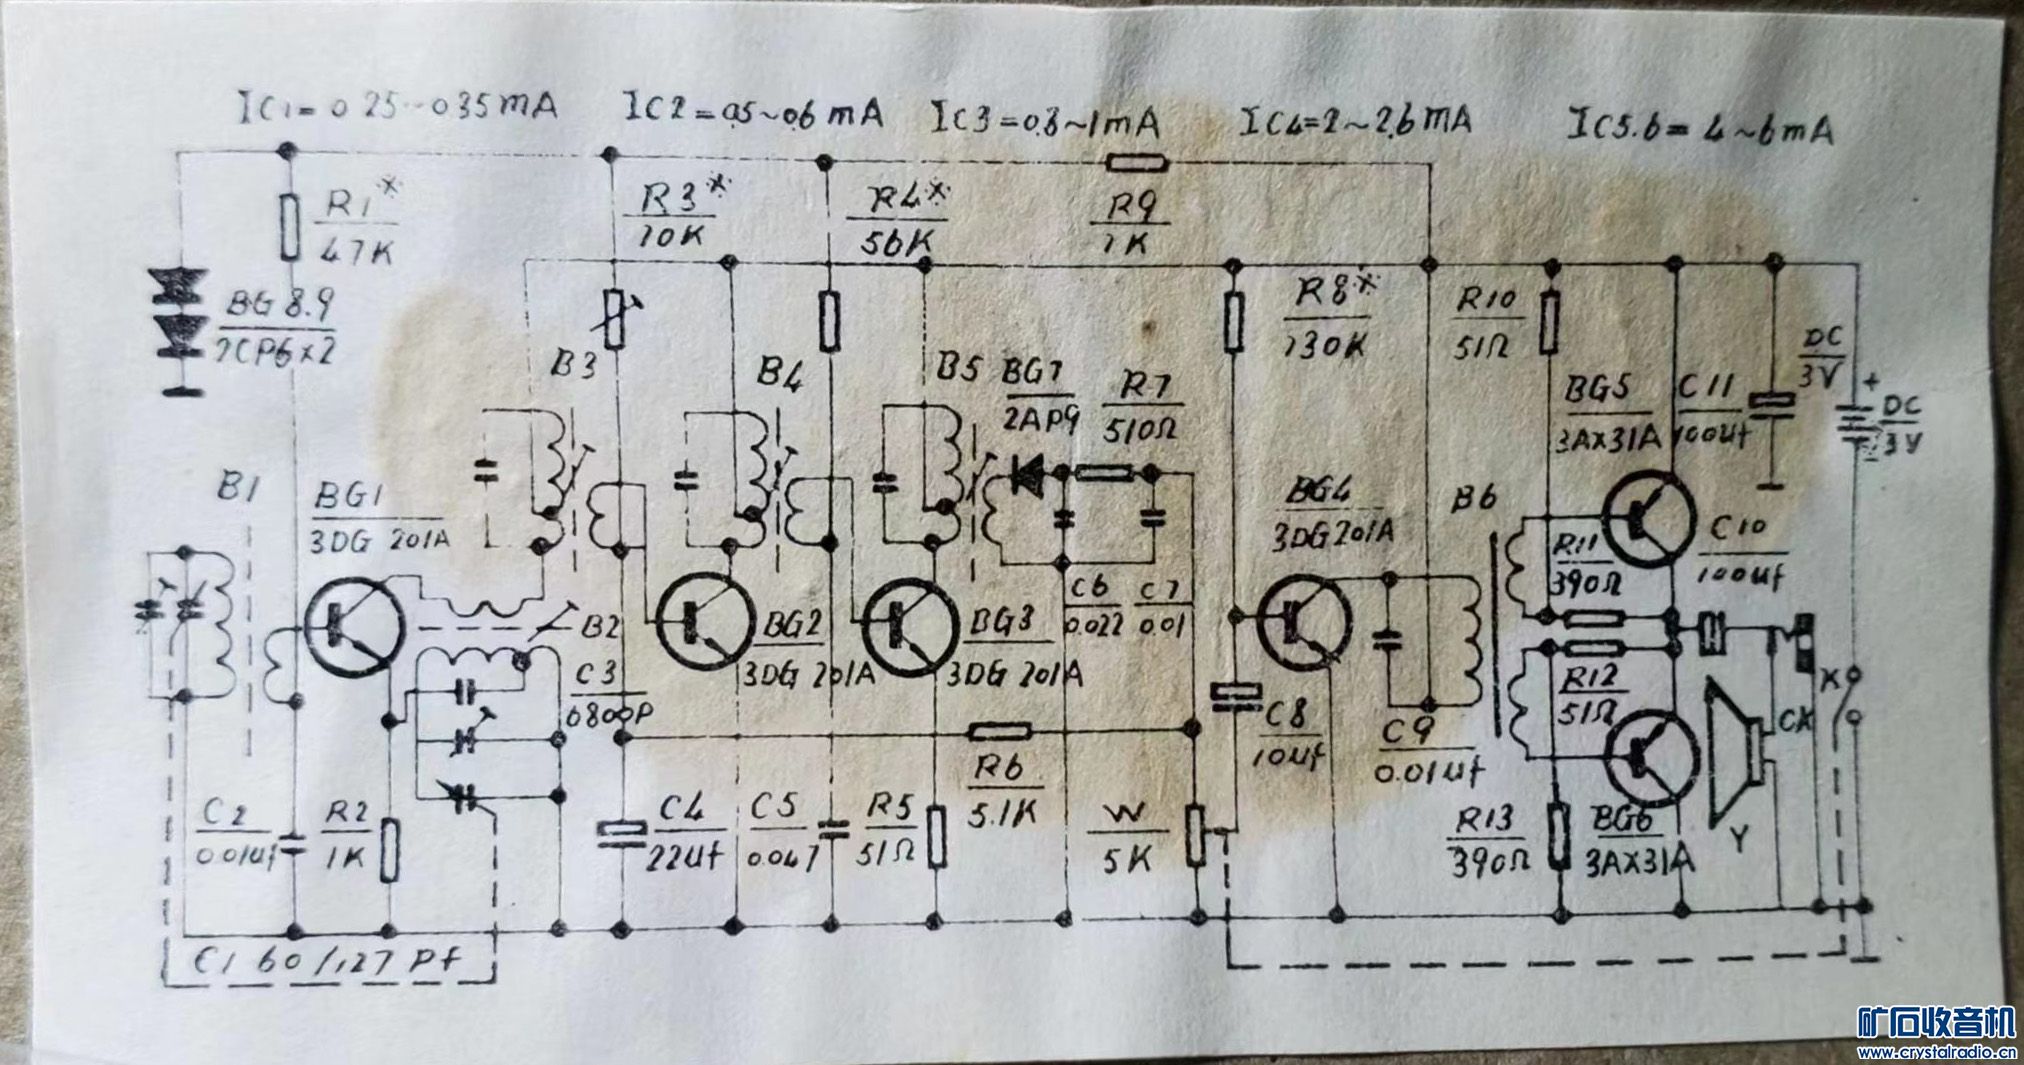 IC1=0.25~0.35mA
IC2=0.5~0.6mA
IC3=0.8~1mA
IC4=2~2.6MA
IC5.6=4~6mA
R1*
47K
R3*
10K
R4*
56K
R9
1K
BG8.9
2CP6×2
R8*
130K
R10
51Ω
DC
3V
+
DC
3V
B3
B4
B5
BG7
2AP9
R7
510Ω
BG5
3AX31A
C11
100Uf
B1
BG1
3DG 201A
BG4
3DG201A
B6
R11
390Ω
C10
100Uf
B2
BG2
3DG 201A
BG3
3DG 201A
C6
0.022
C7
0.01
C3
6800P
R12
51Ω
K
C8
10Uf
C9
0.01Uf
CK
R6
5.1K
C2
0.01Uf
R2
1K
C4
22Uf
C5
0.047
R5
51Ω
W
5K
R13
390Ω
BG6
3AX31A
Y
C1 60/127 Pf
矿石收音机
www.crystalradio.cn